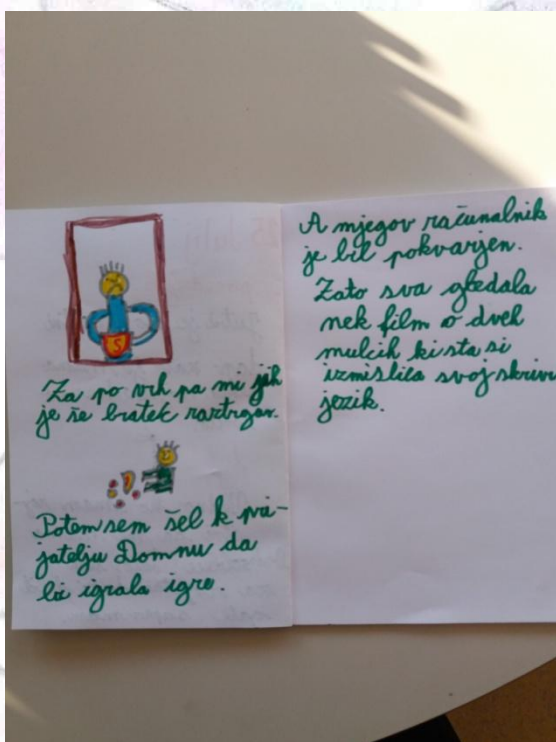 S
Za po vrh pa mi jih
je še bratec raztrgav.
Potem sem šel k pri-
jatelju Domnu da
bi igrala igre.
A njegov računalnik
je bil pokvarjen.
Zato sva gledala
nek film o dveh
mulcih ki sta si
izmislila svoj skrivni
jezik.